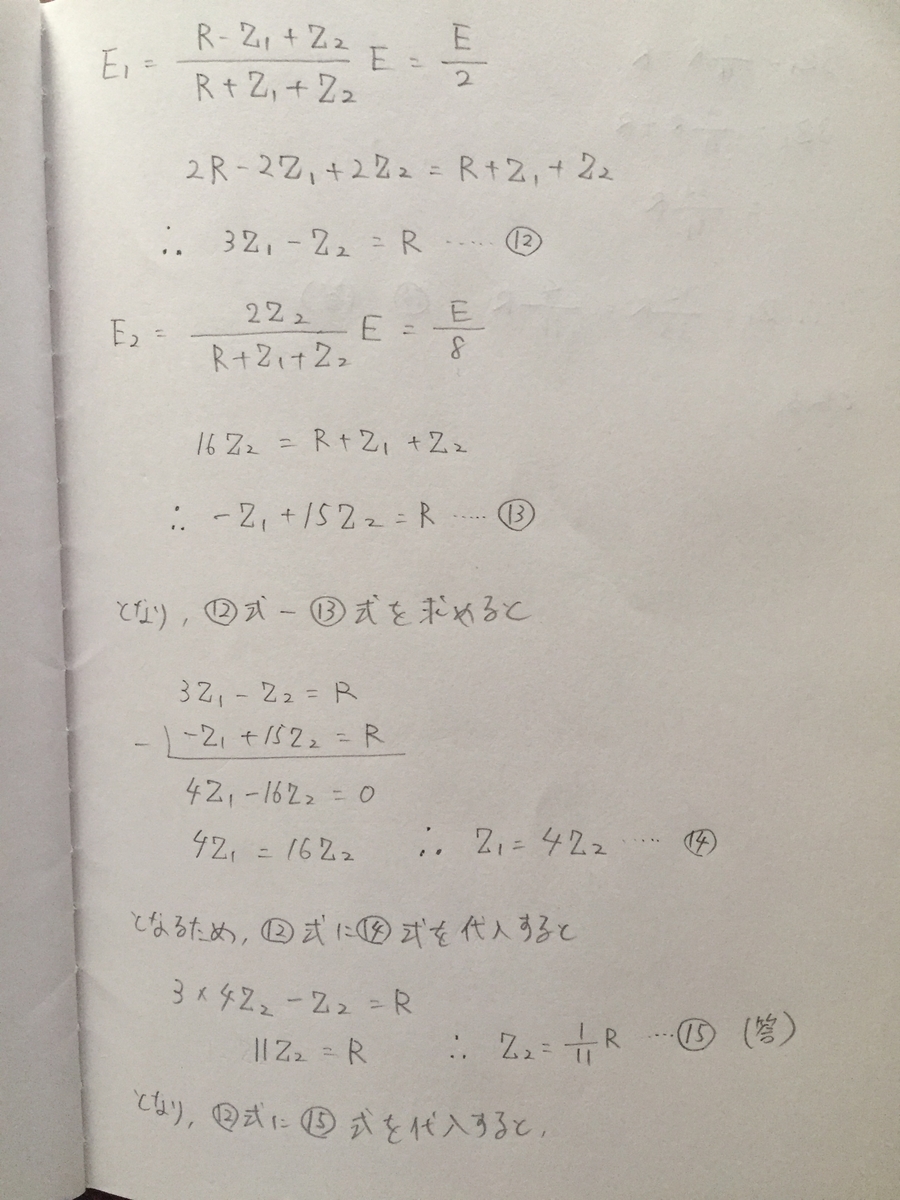 E₁ = (R - Z₁ + Z₂)/(R + Z₁ + Z₂) E = E/2
2R - 2Z₁ + 2Z₂ = R + Z₁ + Z₂
∴ 3Z₁ - Z₂ = R ····· ⑫
E₂ = 2Z₂/(R + Z₁ + Z₂) E = E/8
16Z₂ = R + Z₁ + Z₂
∴ -Z₁ + 15Z₂ = R ····· ⑬
となり, ⑫式 - ⑬式を求めると
3Z₁ - Z₂ = R
-) -Z₁ + 15Z₂ = R
4Z₁ - 16Z₂ = 0
4Z₁ = 16Z₂ ∴ Z₁ = 4Z₂ ····· ⑭
となるため, ⑫式に⑭式を代入すると
3 × 4Z₂ - Z₂ = R
11Z₂ = R ∴ Z₂ = 1/11 R ····⑮ (答)
となり, ⑫式に⑮式を代入すると,